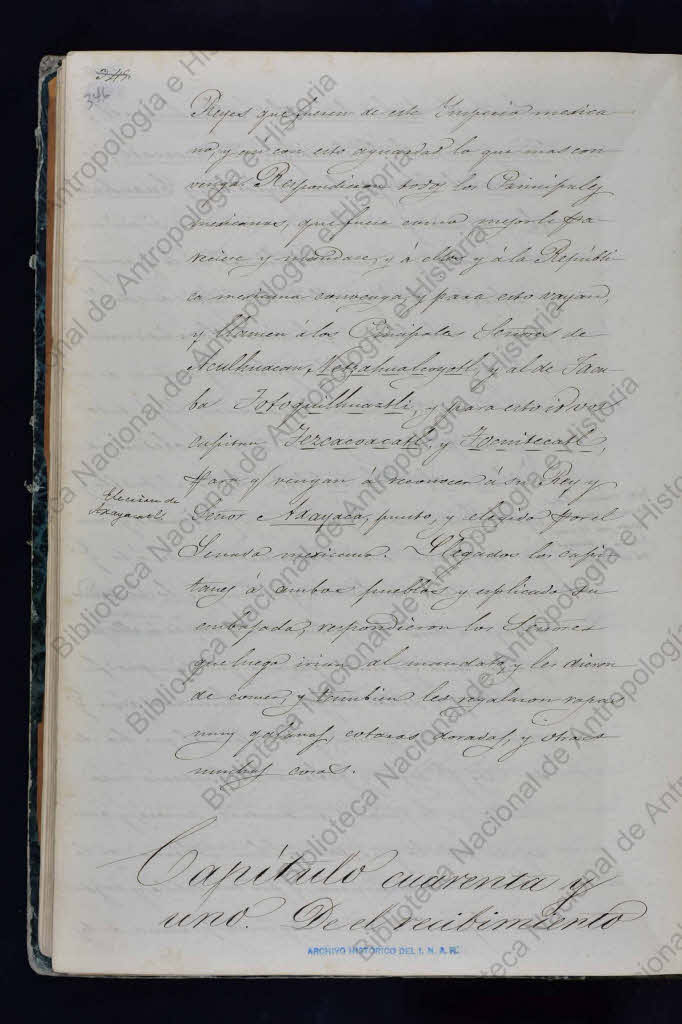 346
Reyes que fueron de este Imperio mexica
no, y con esto aguardad lo que mas con
venga. Respondieron todos los Principales
mexicanos, que fuese como mejor le pa
reciere y mandare, y á ellos y á la Repúbli
ca mexicana convenga, y para esto vayan,
y llamen á los Principales Señores de
Aculhuacan, Netzahualcoyotl, y al de Tacu
ba Totoquilhuaztli, y para esto id vos
capitan Tezcacoacatl, y
para q vengan á reconocer á su Rey y
Eleccion de
Axayacatl.
Señor Axayaca, puesto, y elegido por el
Senado mexicano. Llegados los capi
tanes á ambos pueblos y esplicado su
embajada, respondieron los Señores
que luego irian al mandato, y les dieron
de comer, y tambien les regalaron ropas
muy galanas, cotaras doradas, y otras
muchas cosas.
Capítulo cuarenta y
uno. De el recibimiento
ARCHIVO HISTÓRICO DEL I. N. A. H.
Biblioteca Nacional de Antropología e Historia